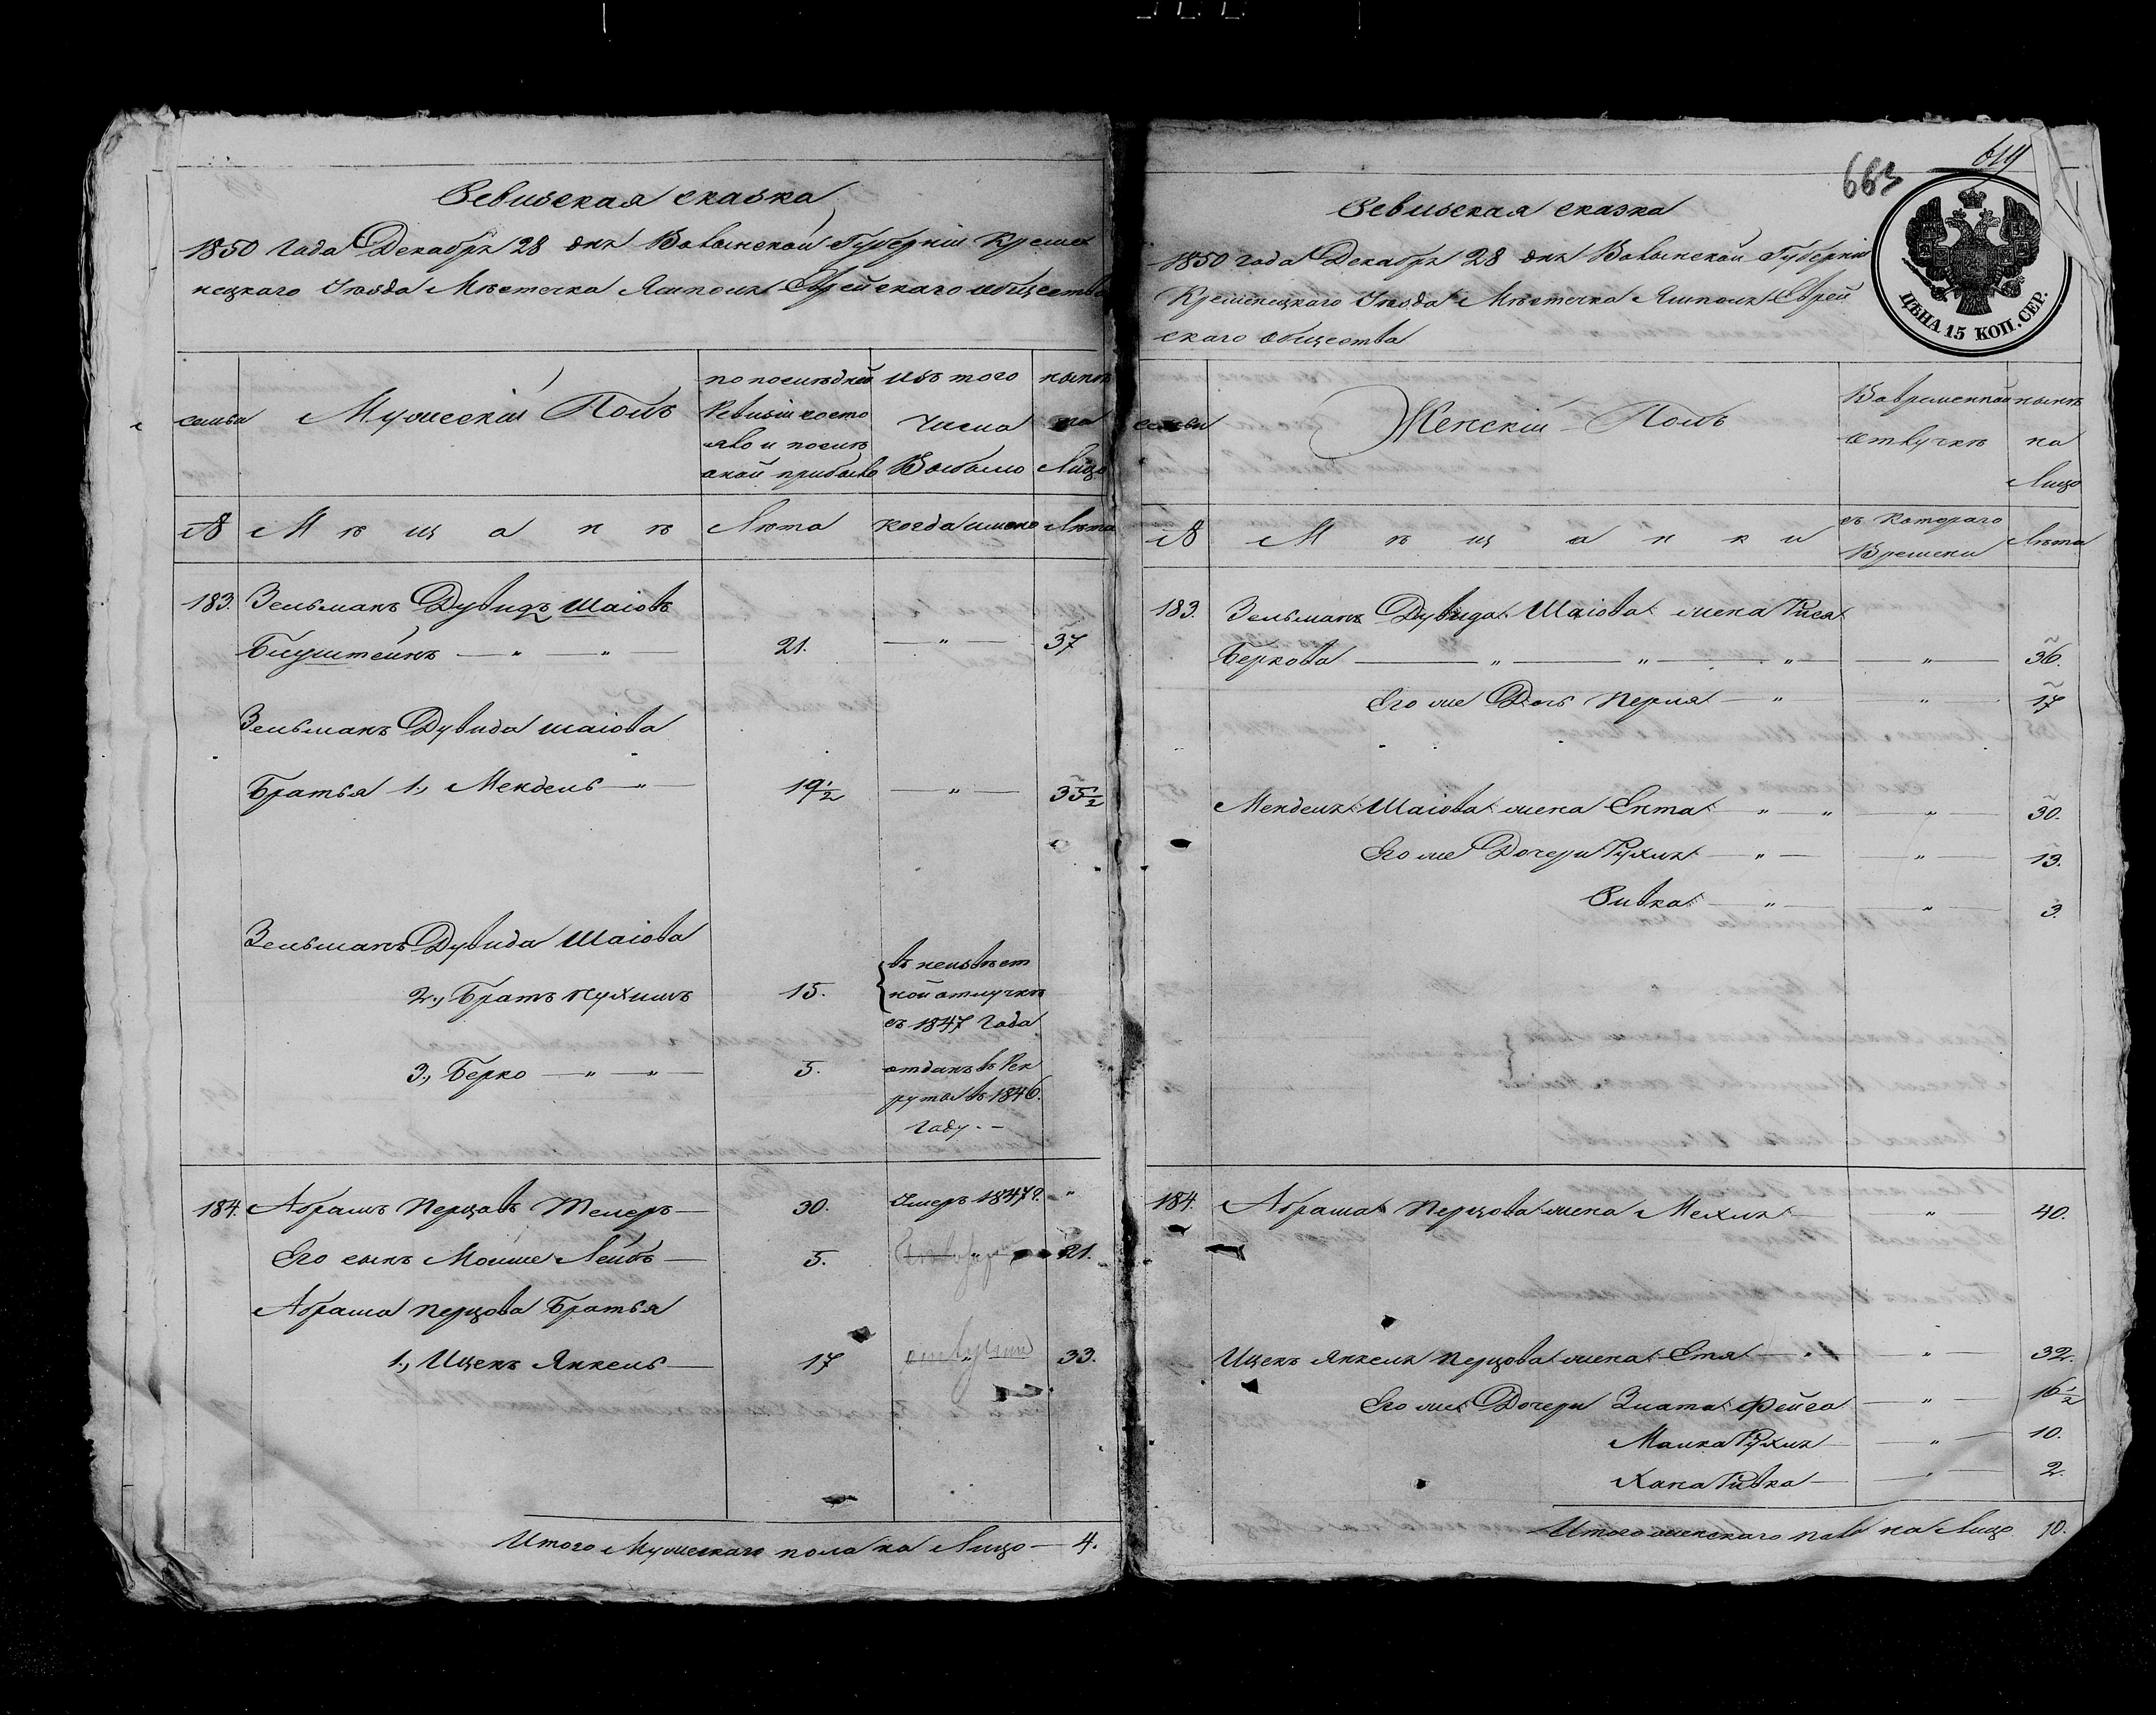 Ревизская сказка
1850 года Декабря 28 дня Волынской Губерніи Креме
нецкаго Уѣзда Мѣстечка Ямполя Еврейскаго общества
семьи
Мужескій Полъ
по послѣдней
Ревизіи состо
яло и послѣ
оной прибыло
изъ того
числа
Выбыло
нынѣ
на
Лицо
№
Мѣщанѣ
Лѣта
когда имено
Лѣта
183. Зельманъ Дувидъ Шаіовъ
— „ — „ — 21. — „ — 37
Зельманъ Дувида Шаіова
Братья 1., Мендель — „ — 19½ — „ — 35½
Зельманъ Дувида Шаіова
2., Братъ Нухимъ 15. въ неизвѣст
ной отлучкѣ
съ 1847 года
3., Берко — „ — „ — 5. отданъ въ Рек
руты въ 1846.
году. —
184. Абрамъ Перцовъ Телеръ — 30. Умеръ 1847 г. „
Его сынъ Моише Лейбъ — 5. 21.
Абрама Перцова Братья
1., Ицекъ Янкель — 17 отлучки 33.
Итого Мужескаго пола на Лицо — 4.
619
663
Ревизская сказка
1850 года Декабря 28 дня Волынской Губерніи
Кременецкаго Уѣзда Мѣстечка Ямполя Еврей
скаго общества
ЦѢНА 15 КОП. СЕР.
семьи
Женскій Полъ
Вовременной
отлучкѣ
нынѣ
на
Лицо
№
Мѣщанки
съ котораго
Времени
Лѣта
183. Зельмана Дувида Шаіова жена Рися
Беркова — „ — „ — „ — „ — 36.
Его же Дочь Перля — „ — „ — 17
Менделя Шаіова жена Ента — „ — „ — „ — 30.
Его же Дочери Рухля — „ — „ — 13.
Ривка — „ — „ — 3.
184. Абрама Перцова жена Мехля — „ — 40.
Ицекъ Янкеля Перцова жена Етя — „ — „ — 32.
Его же Дочери Злата Фейга — „ — 16½
Малка Рухля — „ — 10.
Хана Ривка — „ — 2.
Итого женскаго пола на Лицо 10.